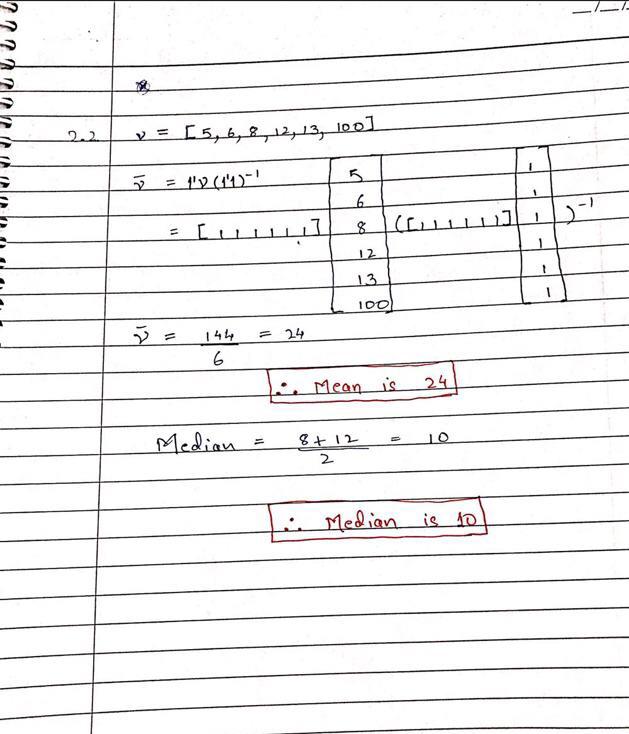 __/__/
2.2 v = [5, 6, 8, 12, 13, 100]
v̄ = 1'v(1'1)⁻¹
= [1 1 1 1 1 1] [5 6 8 12 13 100] ([1 1 1 1 1 1] [1 1 1 1 1 1])⁻¹
v̄ = 144/6 = 24
∴ Mean is 24
Median = (8 + 12)/2 = 10
∴ Median is 10